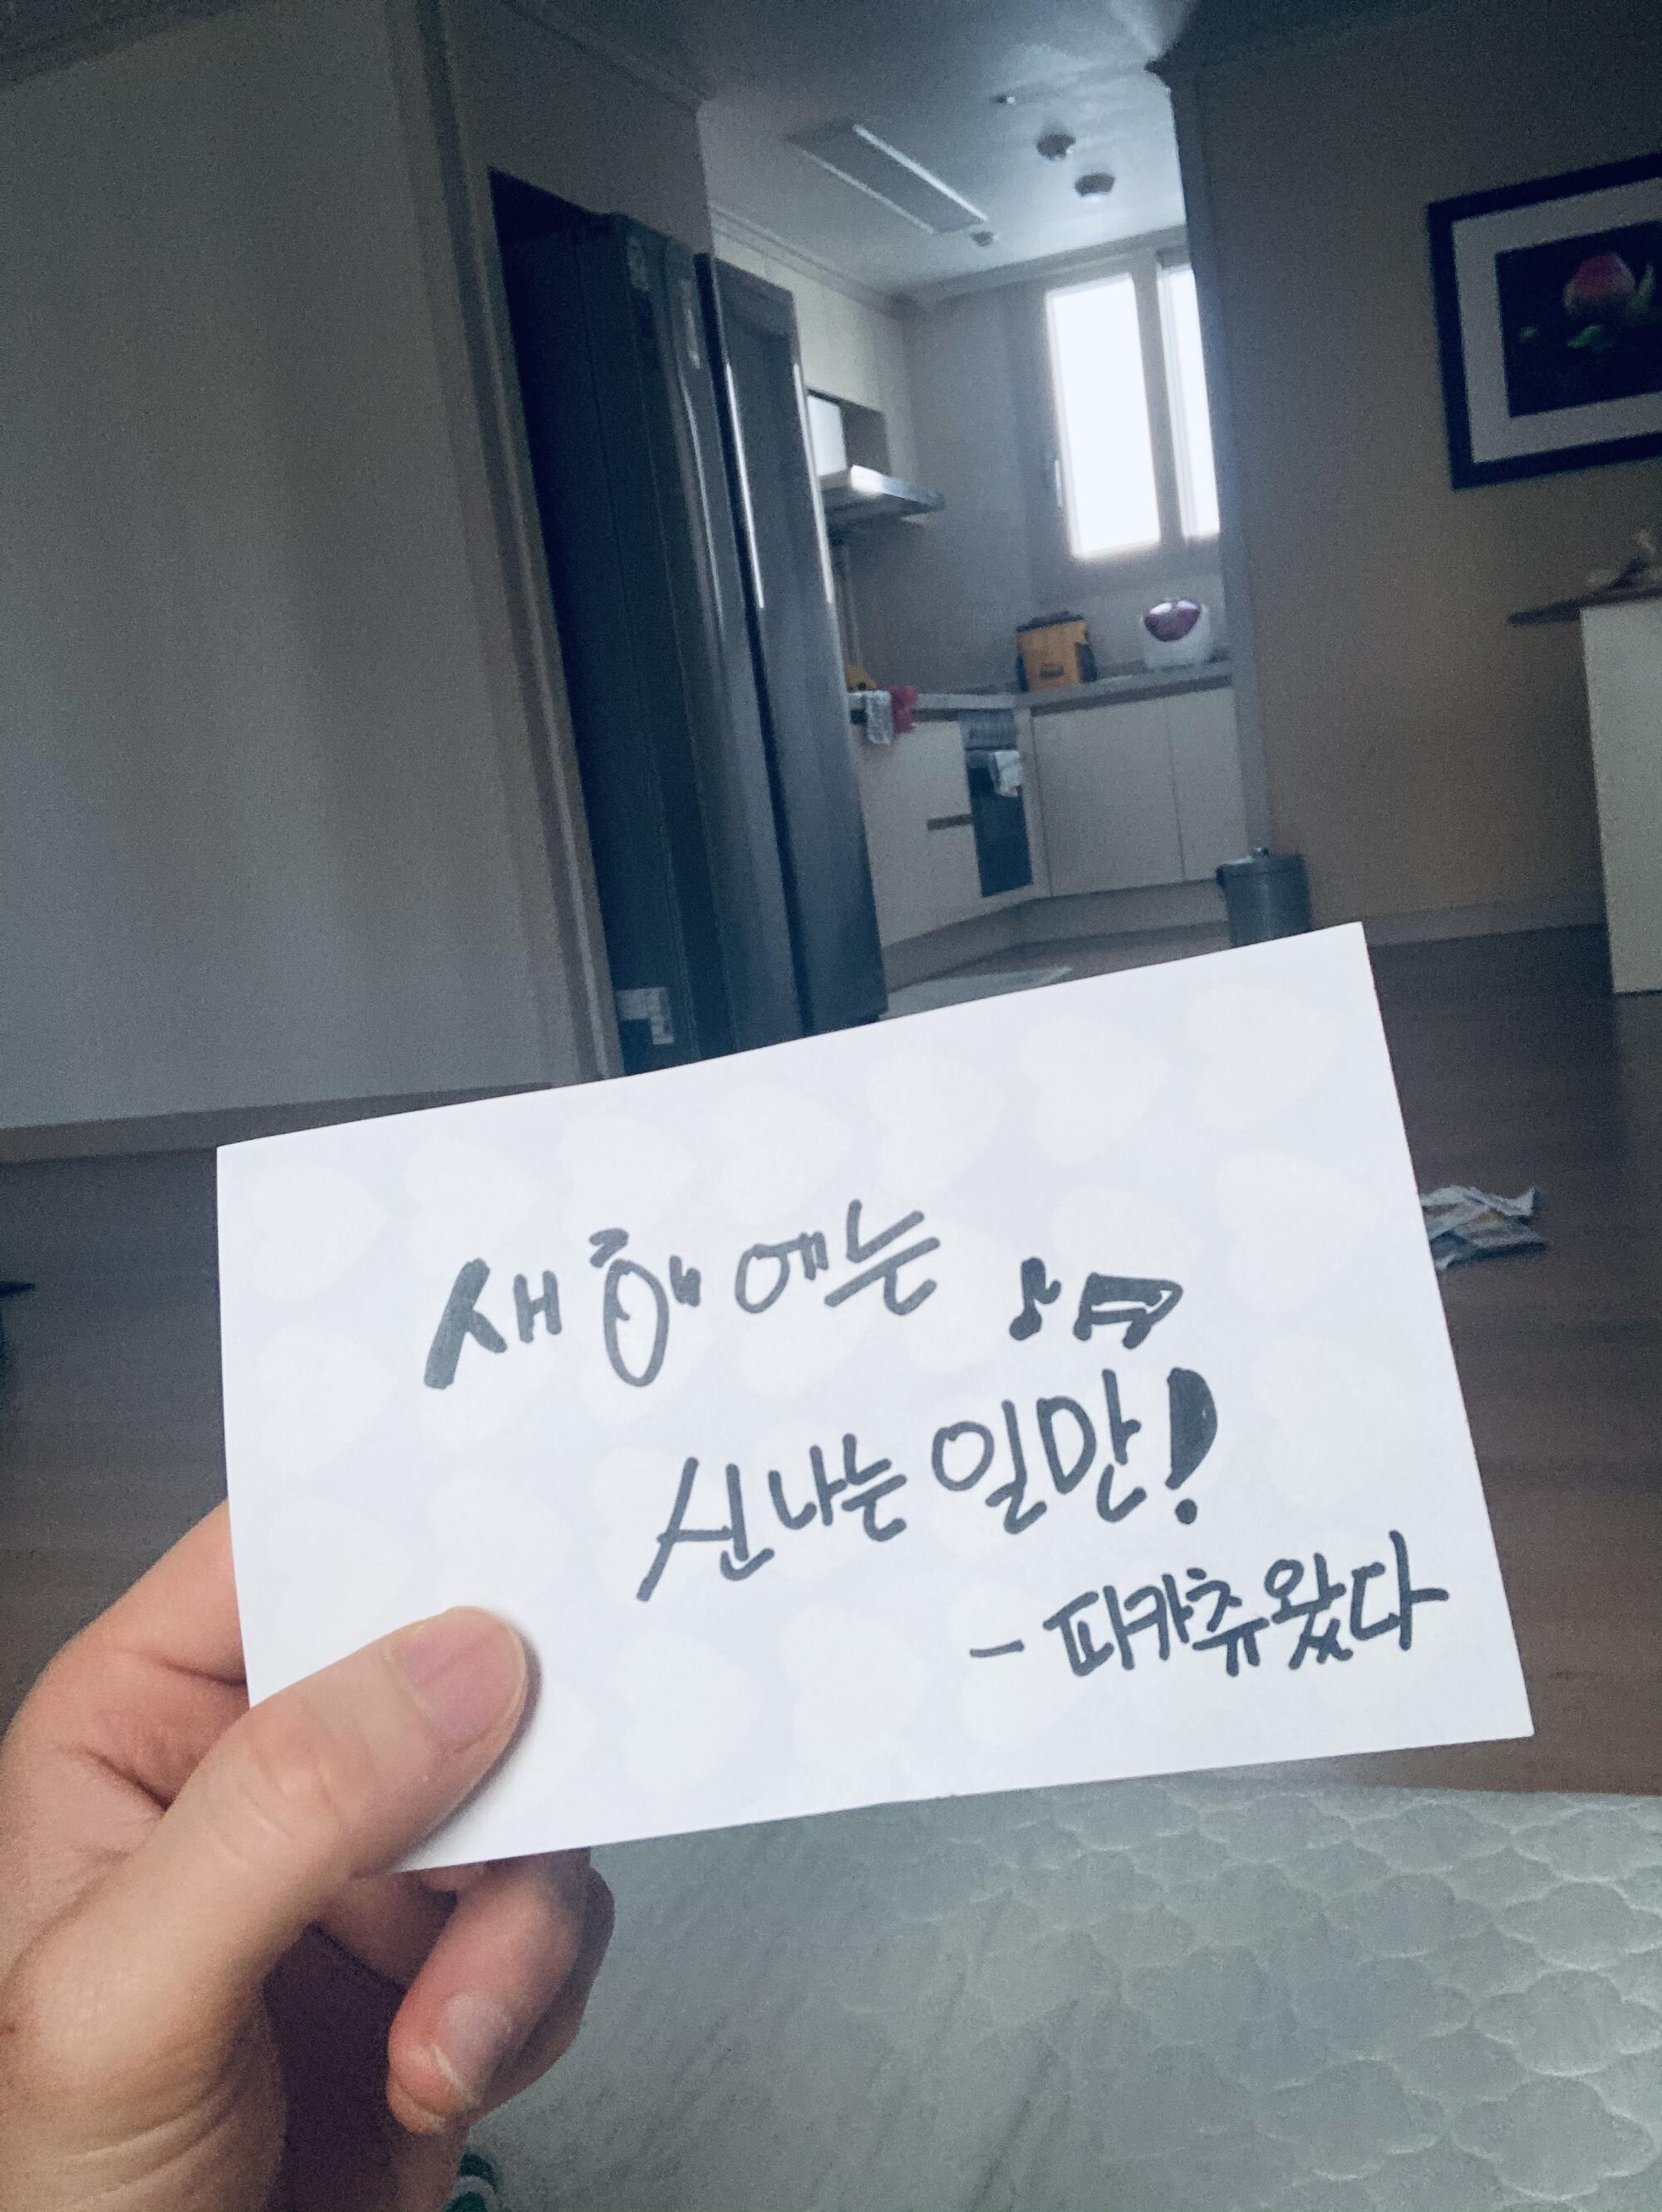 새해에는 ♪♫
신나는 일만!
- 파캬츄왔다